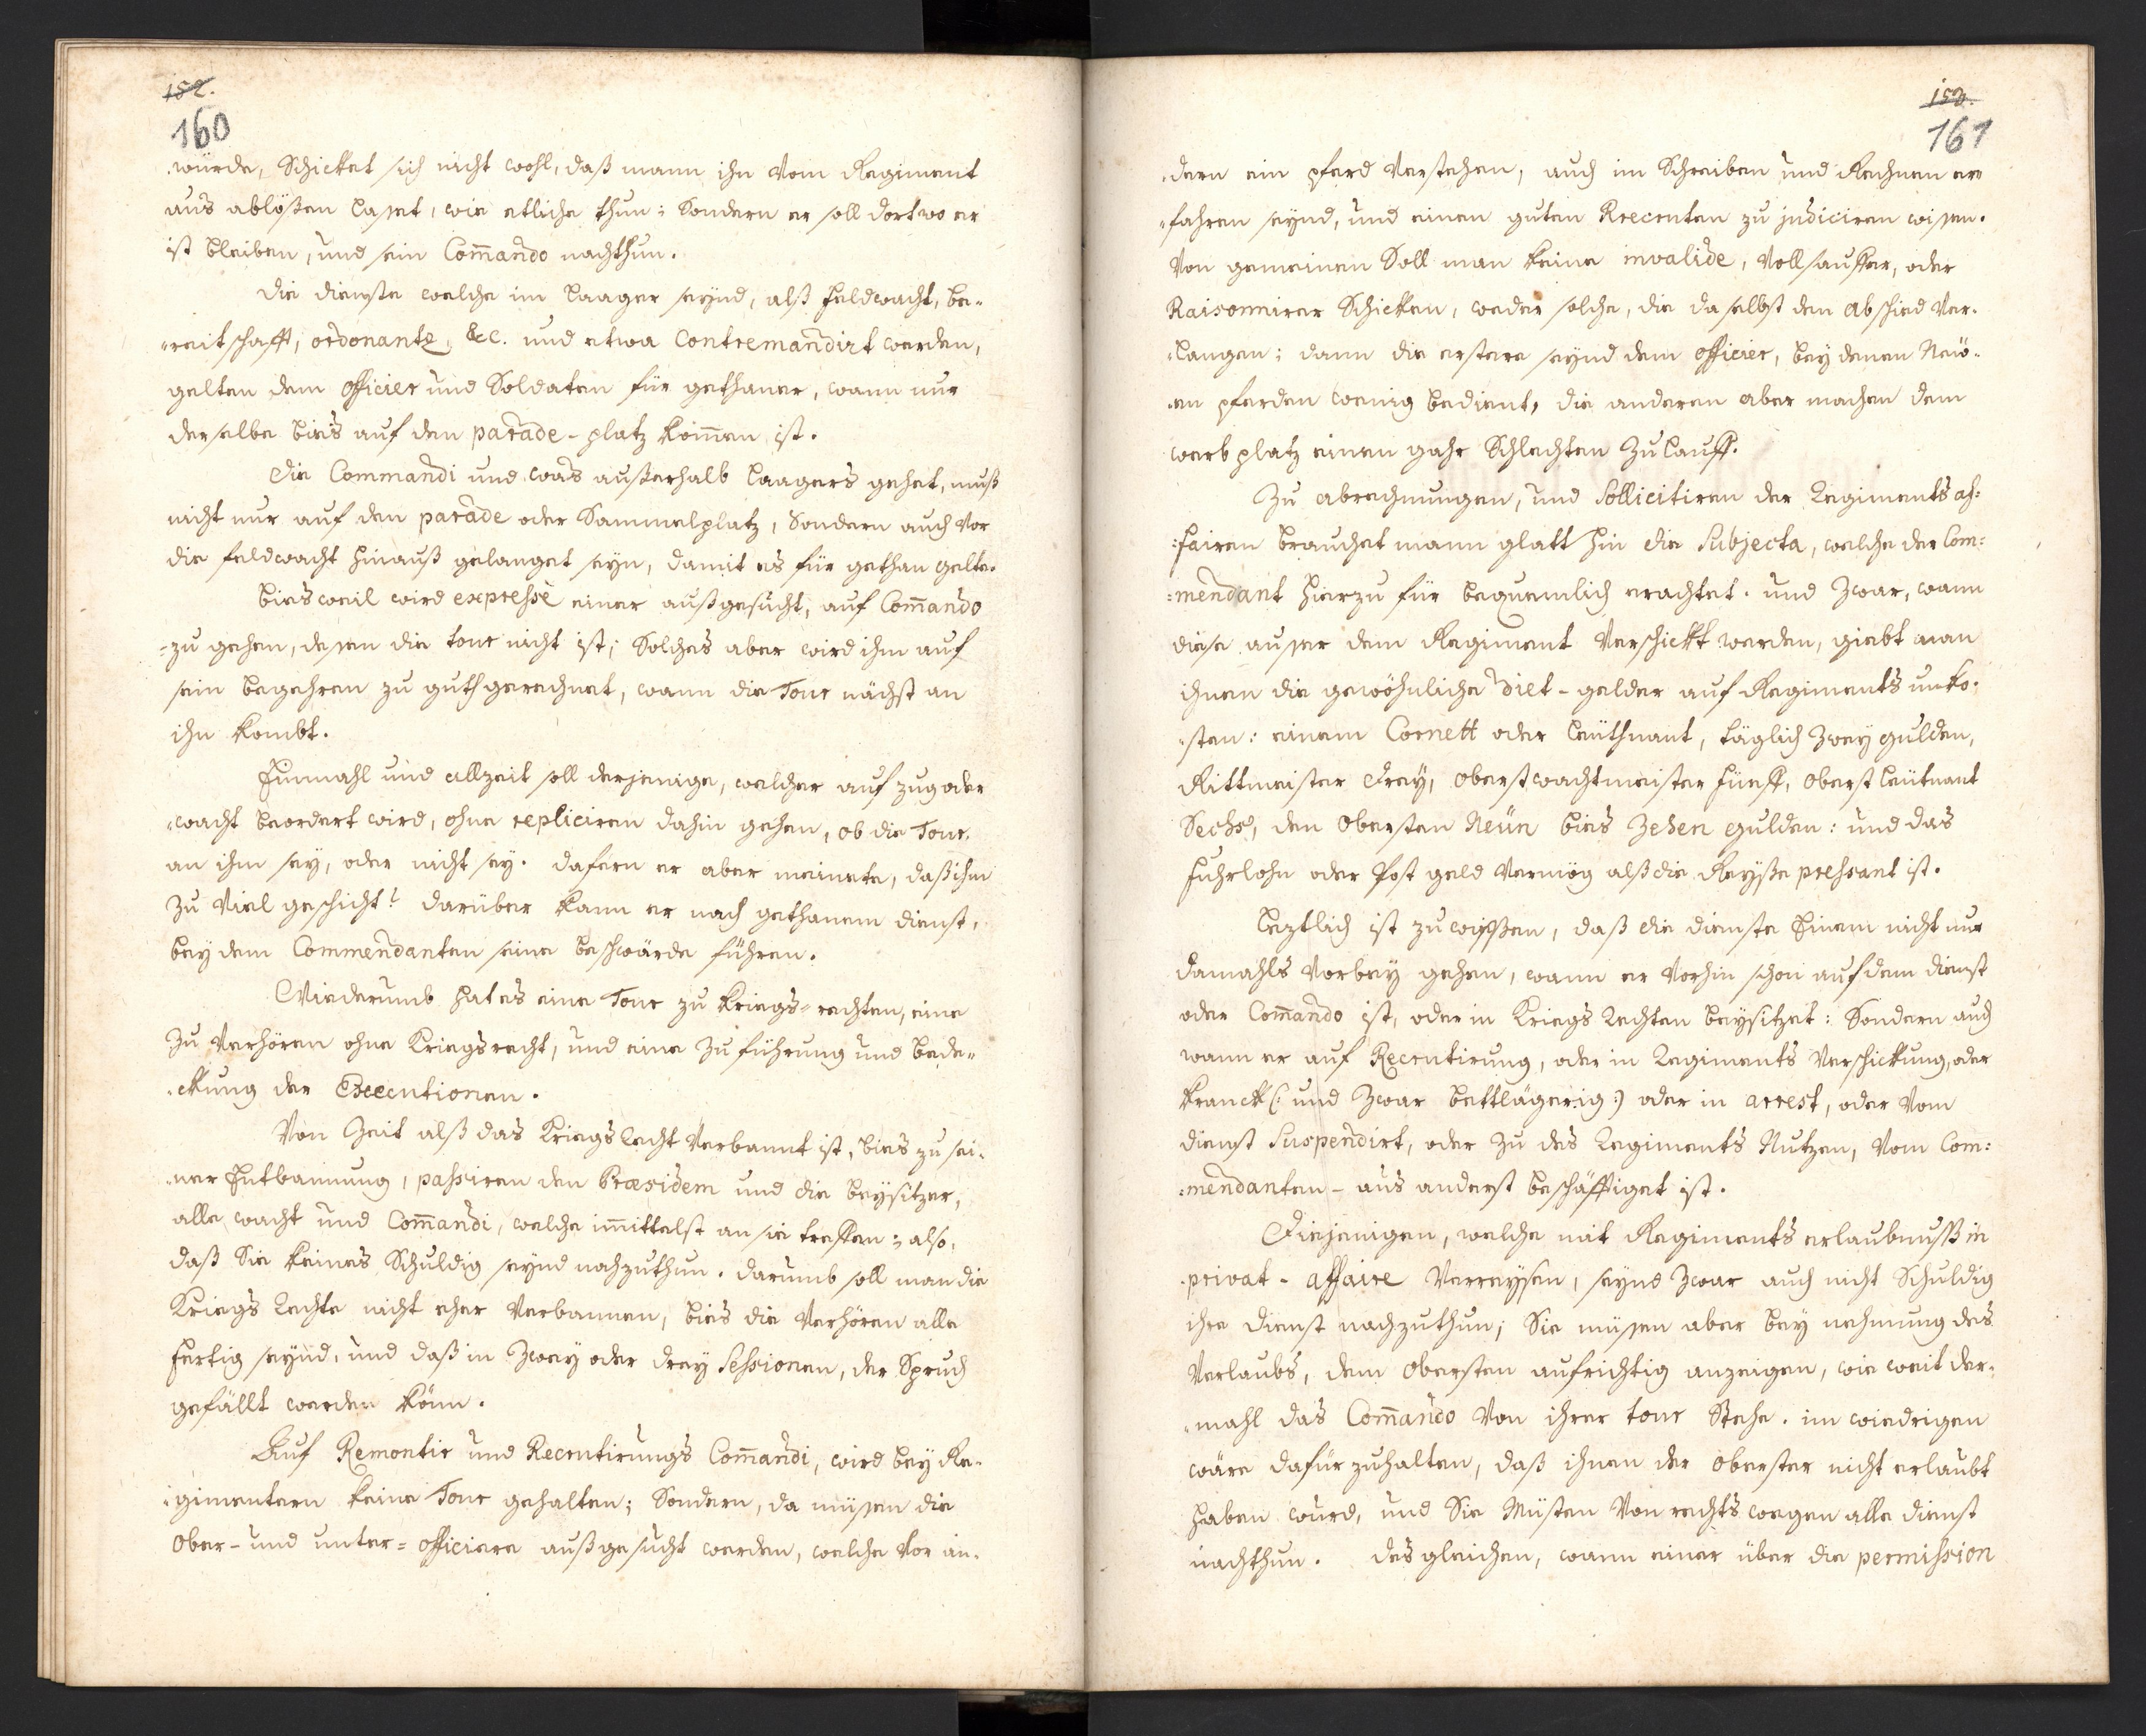 152.
160
würde, Schicket sich nicht wohl, daß mann ihn Vom Regiment
aus ablößen lasset, wie etliche thun: Sondern er soll dort wo er
ist bleiben, und sein Com̅ando nachthun.
Die dienste welche im Laager seynd, alß feldwacht, be-
-reitschafft, ordonantz, &c. und etwa Contremandirt werden,
gelten dem Officier und Soldaten für gethaner, wann nur
derselbe bies auf den parade-platz kom̅en ist.
Die Commandi und was außerhalb Laagers gehet, muß
nicht nur auf den parade oder Sammelplatz, Sondern auch vor
die feldwacht hinauß gelanget seyn, damit es für gethan gelte.
Biesweil wird expresse einer außgesucht, auf Com̅ando
-zu gehen, dessen die tour nicht ist; Solches aber wird ihm auf
sein begehren zu guth gerechnet, wann die Tour nächst an
ihn kombt.
Einmahl und allzeit soll derjenige, welcher auf zug oder
-wacht beordert wird, ohne repliciren dahin gehen, ob die Tour,
an ihm sey, oder nicht sey. dafern er aber meinete, daß ihm
zu Viel geschicht? darüber kann er nach gethanem dienst,
bey dem Commendanten seine beschwärde führen.
Wiederumb hat es eine Tour zu Kriegs-rechten, eine
Zu Verhören ohne Kriegsrecht, und eine Zu führung und bede-
-ckung der Executionen.
Von Zeit alß das Kriegs Recht Verbannt ist, bies zu sei-
-ner Entbannung, passiren den Præsidem und die beysitzer,
alle wacht und Com̅andi, welche im̅ittelst an sie treffen; also,
daß Sie keines Schuldig seynd nachzuthun. darumb soll man die
Kriegs Rechte nicht eher Verbannen, bies die Verhören alle
fertig seynd, und daß in Zwey oder drey Sessionen, der Spruch
gefällt werden könn.
Auf Remontir und Recrutirungs Com̅andi, wird bey Re-
-gimentern keine Tour gehalten; Sondern, da müssen die
Ober- und unter-officiere außgesucht werden, welche Vor an-
153.
161
-dern ein pferd Verstehen, auch im Schreiben und Rechnen er-
-fahren seynd, und einen guten Recruten zu judiciren wissen.
Von gemeinen Soll man keine invalide, Vollsauffer, oder
Raisonnirer Schicken, weder solche, die da selbst den abschied Ver-
-langen: dann die erstere seynd dem officier, bey denen Neü-
-en pferden wenig bedient, die anderen aber machen dem
werb platz einen gahr Schlechten Zulauff.
Zu abrechnungen, und Sollicitiren der Regiments af-
-fairen brauchet mann glatt hin die Subjecta, welche der Com-
-mendant hierzu für bequemlich erachtet. und Zwar, wann
diese ausser dem Regiment Verschickt werden, giebt man
ihnen die gewöhnliche diet-gelder auf Regiments unko-
-sten: einem Cornett oder leüthnant, täglich Zwey gulden,
Rittmeister Drey, Oberstwachtmeister fünff, Oberst leütnant
Sechs, den Obersten Neün bies Zehen gulden: und das
fuhrlohn oder Post geld Vermög alß die Reyße pressant ist.
Leztlich ist zu wissen, daß die dienste Einem nicht nur
damahls Vorbey gehen, wann er Vorhin schon auf dem dienst
oder Com̅ando ist, oder in Kriegs Rechten beysitzet: Sondern auch
wann er auf Recrutirung, oder in Regiments Verschickung, oder
kranck (: und Zwar bettlägerig :) oder in arrest, oder Vom
dienst Suspendirt, oder zu des Regiments Nutzen, Vom Com-
-mendanten - aus anderst beschäfftiget ist.
Diejenigen, welche mit Regiments erlaubnuß in
privat-affaire Verreysen, seynd zwar auch nicht Schuldig
ihre dienst nachzuthun; Sie müssen aber bey nehmung des
Verlaubs, dem Obersten aufrichtig anzeigen, wie weit der-
-mahl das Com̅ando Von ihrer tour Stehe. im wiedrigen
wäre dafür zuhalten, daß ihnen der Oberster nicht erlaubt
haben würd, und Sie Müsten Von rechts wegen alle dienst
nachthun. desgleichen, wann einer über die permission